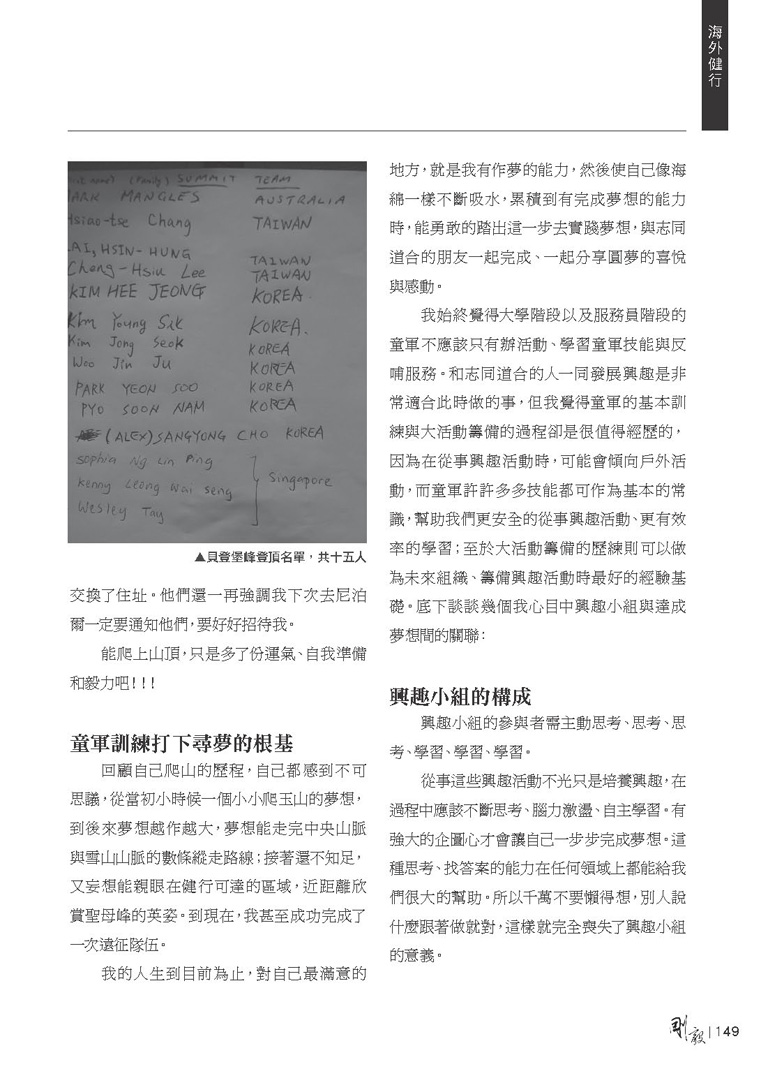 海外健行
SUMMIT TEAM
MARK MANGLES AUSTRALIA
Hsiao-tse Chang TAIWAN
LAI, HSIN-HUNG TAIWAN
Chang-Hsiu Lee TAIWAN
KIM HEE JEONG KOREA
Kim Young Sik KOREA.
Kim Jong Seok KOREA
Woo Jin Ju KOREA
PARK YEON SOO KOREA
PYO SOON NAM KOREA
(ALEX) SANGYONG CHO KOREA
Sophia Ng Lin Ping
Kenny Leong Wai Seng Singapore
Wesley Tay
▲貝登堡峰登頂名單，共十五人
交換了住址。他們還一再強調我下次去尼泊
爾一定要通知他們，要好好招待我。
能爬上山頂，只是多了份運氣、自我準備
和毅力吧！！！
童軍訓練打下尋夢的根基
回顧自己爬山的歷程，自己都感到不可
思議，從當初小時候一個小小爬玉山的夢想，
到後來夢想越作越大，夢想能走完中央山脈
與雪山山脈的數條縱走路線；接著還不知足，
又妄想能親眼在健行可達的區域，近距離欣
賞聖母峰的英姿。到現在，我甚至成功完成了
一次遠征隊伍。
我的人生到目前為止，對自己最滿意的
地方，就是我有作夢的能力，然後使自己像海
綿一樣不斷吸水，累積到有完成夢想的能力
時，能勇敢的踏出這一步去實踐夢想，與志同
道合的朋友一起完成、一起分享圓夢的喜悅
與感動。
我始終覺得大學階段以及服務員階段的
童軍不應該只有辦活動、學習童軍技能與反
哺服務。和志同道合的人一同發展興趣是非
常適合此時做的事，但我覺得童軍的基本訓
練與大活動籌備的過程卻是很值得經歷的，
因為在從事興趣活動時，可能會傾向戶外活
動，而童軍許許多多技能都可作為基本的常
識，幫助我們更安全的從事興趣活動、更有效
率的學習；至於大活動籌備的歷練則可以做
為未來組織、籌備興趣活動時最好的經驗基
礎。底下談談幾個我心目中興趣小組與達成
夢想間的關聯：
興趣小組的構成
興趣小組的參與者需主動思考、思考、思
考、學習、學習、學習。
從事這些興趣活動不光只是培養興趣，在
過程中應該不斷思考、腦力激盪、自主學習。有
強大的企圖心才會讓自己一步步完成夢想。這
種思考、找答案的能力在任何領域上都能給我
們很大的幫助。所以千萬不要懶得想，別人說
什麼跟著做就對，這樣就完全喪失了興趣小組
的意義。
剛毅 | 149